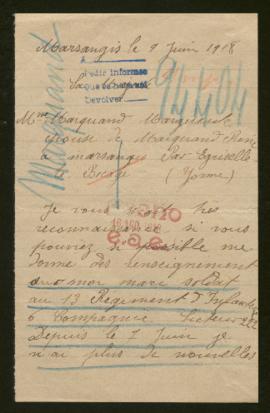 Marsangis le 9 Juin 1918
Pedir informes
Devolver
94404
Marquand
Mme Marquand Marguerite
épouse de Marquand René
à marsangis Par Egriselle
le Bocage (Yonne)
Je vous serait très
reconnaissante si vous
pouviez si possible me
donné des renseignement
sur mon mari soldat
au 13 Regiment d'Infanterie
6 Compagnie Secteur
Depuis le 7 Juin je
n'ai plus de nouvelles